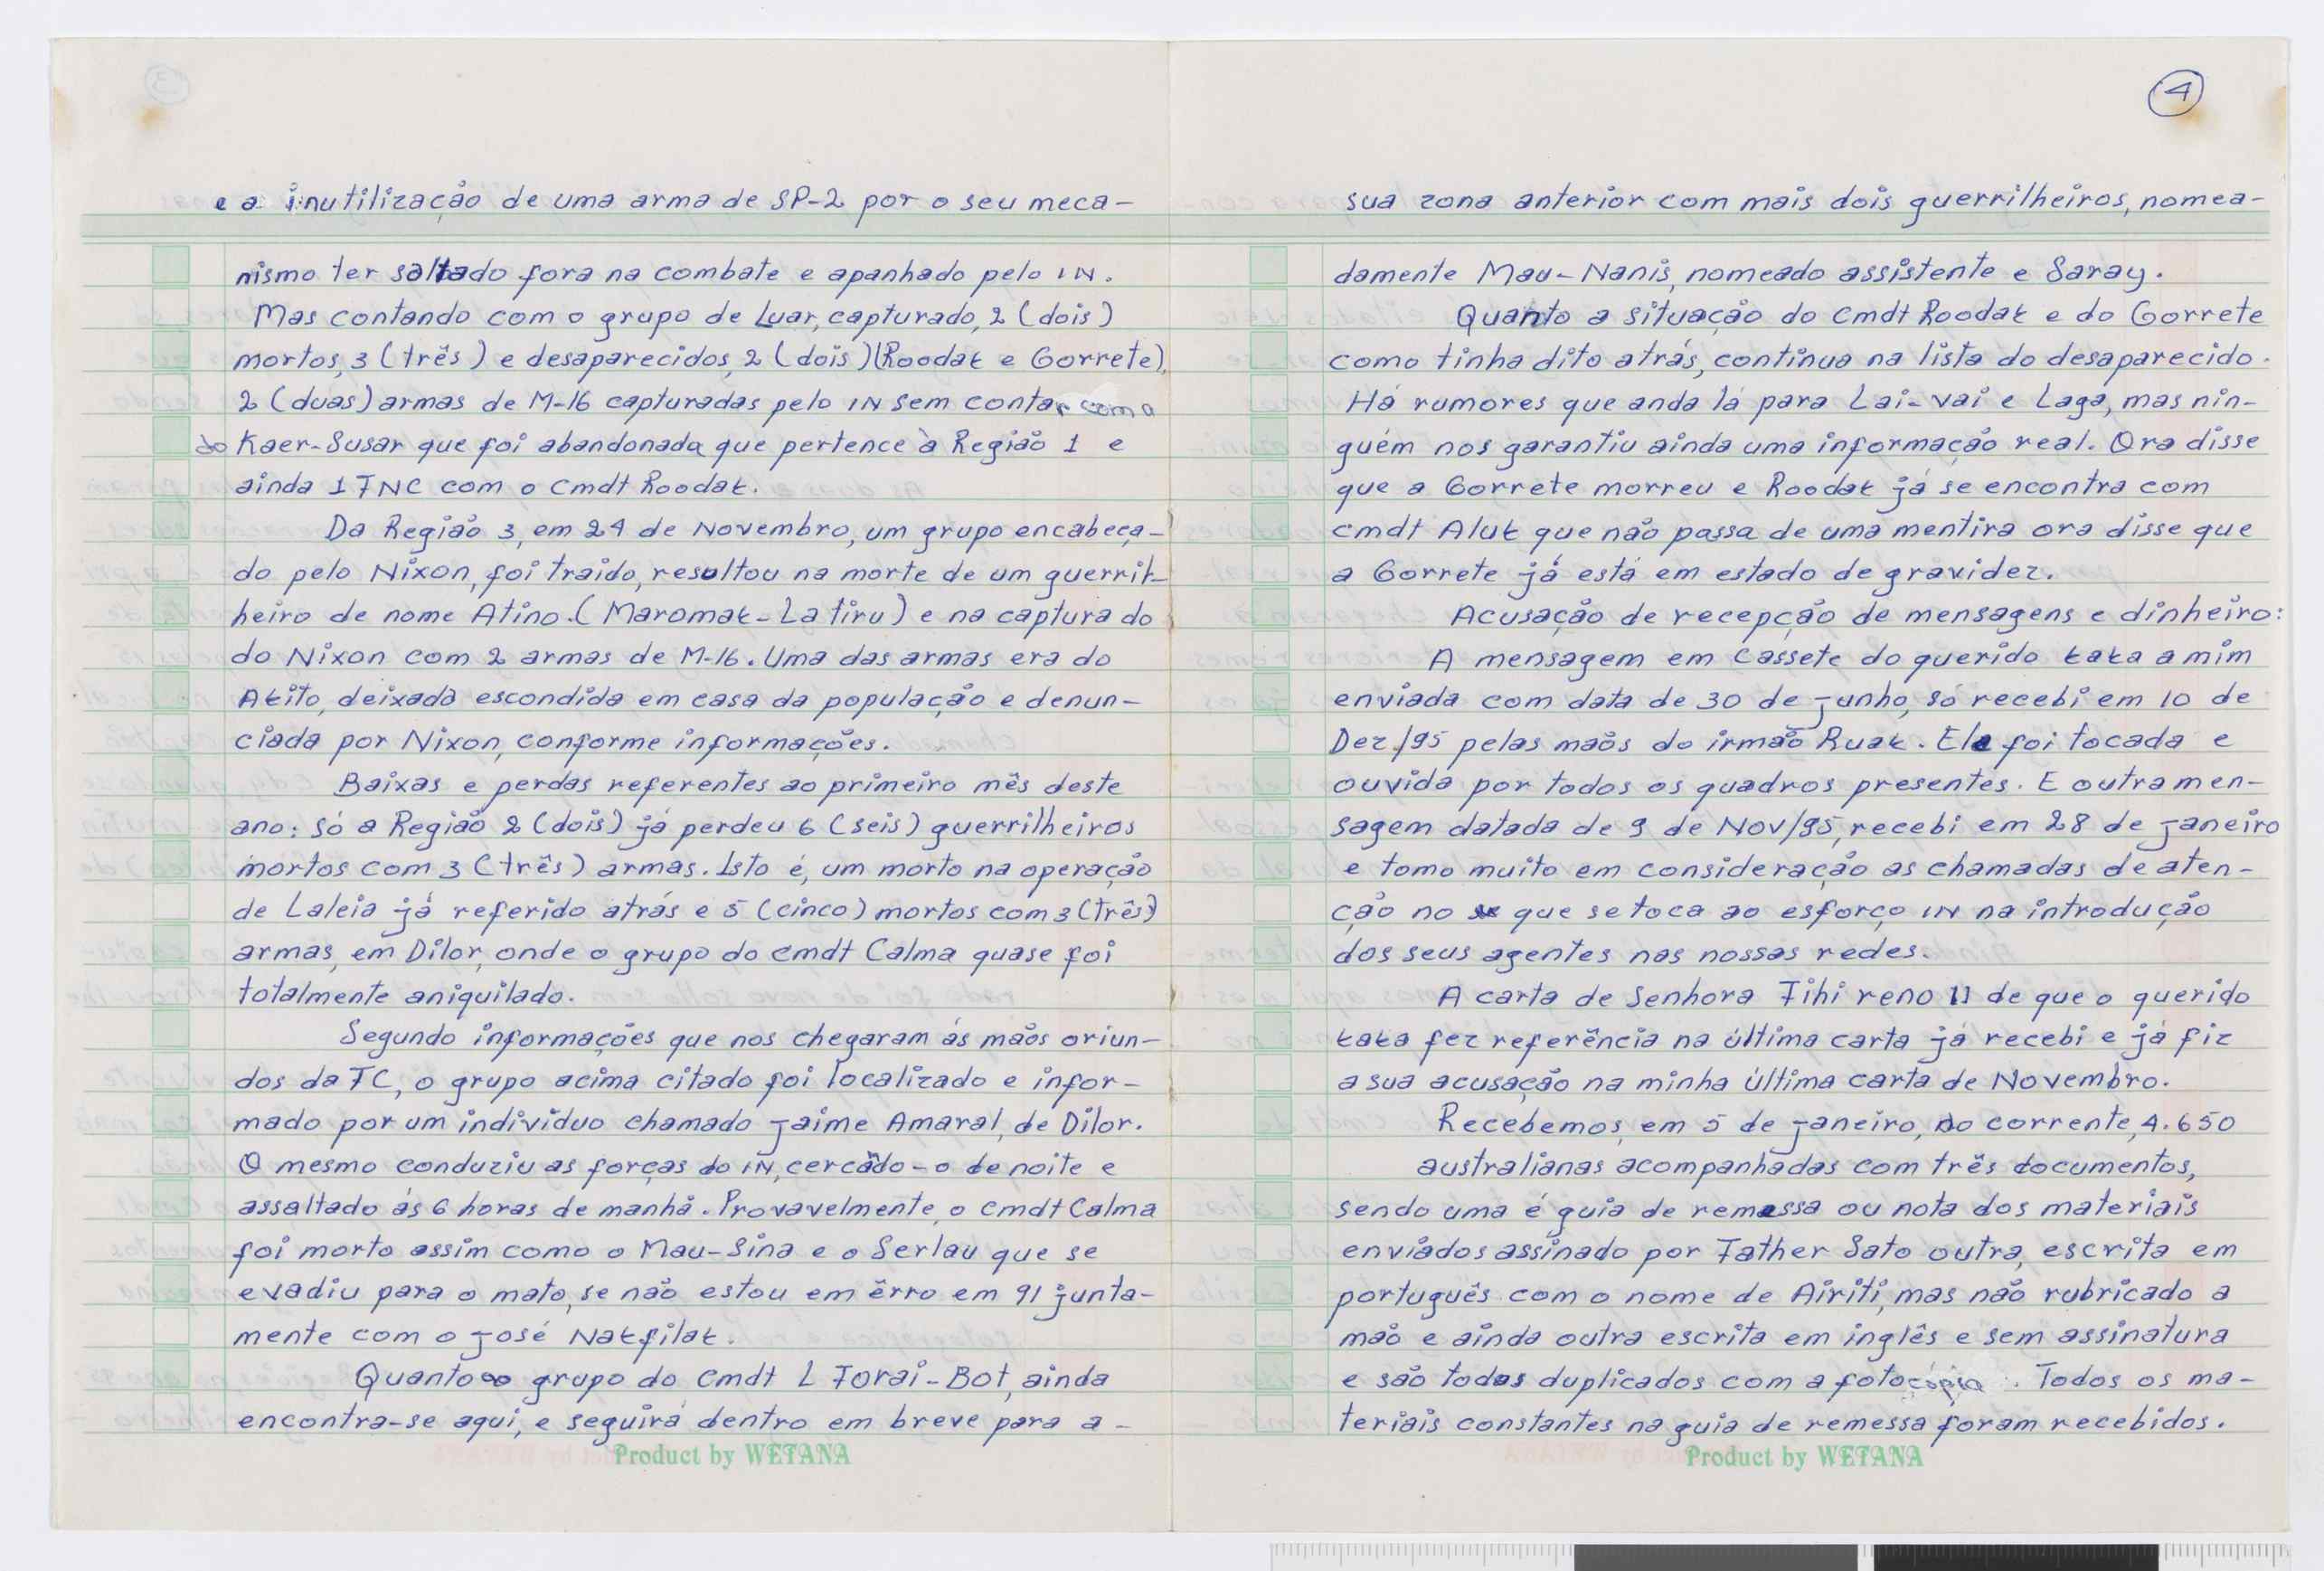 e a inutilização de uma arma de SP-2 por o seu meca-
nismo ter saltado fora na combate e apanhado pelo IN.
Mas contando com o grupo de Luar, capturado, 2 (dois)
mortos, 3 (três) e desaparecidos, 2 (dois) (Roodak e Gorrete),
2 (duas) armas de M-16 capturadas pelo IN sem contar com a
do Kaer-Susar que foi abandonada que pertence à Região 1 e
ainda 1 FNC com o Cmdt Roodak.
Da Região 3, em 24 de Novembro, um grupo encabeça-
do pelo Nixon, foi traido, resultou na morte de um guerril-
heiro de nome Atino. (Maromak-Latiru) e na captura do
do Nixon com 2 armas de M-16. Uma das armas era do
Akito, deixada escondida em casa da população e denun-
ciada por Nixon, conforme informações.
Baixas e perdas referentes ao primeiro mês deste
ano: só a Região 2 (dois) já perdeu 6 (seis) guerrilheiros
mortos com 3 (três) armas. Isto é, um morto na operação
de Laleia já referido atrás e 5 (cinco) mortos com 3 (três)
armas, em Dilor, onde o grupo do cmdt Calma quase foi
totalmente aniquilado.
Segundo informações que nos chegaram ás maõs oriun-
dos da FC, o grupo acima citado foi localizado e infor-
mado por um indivíduo chamado Jaime Amaral, de Dilor.
O mesmo conduziu as forças do IN, cercãdo-o de noite e
assaltado ás 6 horas de manhã. Provavelmente, o cmdt Calma
foi morto assim como o Mau-Sina e o Serlau que se
evadiu para o mato, se não estou em êrro em 91 junta-
mente com o José Nakfilak.
Quanto ao grupo do cmdt L Forai-Bot, ainda
encontra-se aqui, e seguirá dentro em breve para a-
4
sua zona anterior com mais dois guerrilheiros, nomea-
damente Mau-Nanis, nomeado assistente e Saray.
Quanto a situação do Cmdt Roodak e do Gorrete
como tinha dito atrás, continua na lista do desaparecido.
Há rumores que anda lá para Lai-vai e Laga, mas nin-
guém nos garantiu ainda uma informação real. Ora disse
que a Gorrete morreu e Roodak já se encontra com
cmdt Aluk que não passa de uma mentira ora disse que
a Gorrete já está em estado de gravidez.
Acusação de recepção de mensagens e dinheiro:
A mensagem em Cassete do querido kaka a mim
enviada com data de 30 de Junho, só recebi em 10 de
Dez./95 pelas maõs do irmaõ Ruak. Ela foi tocada e
ouvida por todos os quadros presentes. E outra men-
sagem datada de 9 de Nov/95, recebi em 28 de Janeiro
e tomo muito em consideração as chamadas de aten-
ção no que se toca ao esforço IN na introdução
dos seus agentes nas nossas redes.
A carta de Senhora Fihi reno 11 de que o querido
kaka fez referência na última carta já recebi e já fiz
a sua acusação na minha última carta de Novembro.
Recebemos, em 5 de Janeiro, do corrente, 4.650
australianas acompanhadas com três documentos,
sendo uma é guia de remessa ou nota dos materiais
enviados assinado por Father Sato outra, escrita em
português com o nome de Airiti, mas não rubricado a
maõ e ainda outra escrita em inglês e sem assinatura
e são todas duplicados com a fotocópia. Todos os ma-
teriais constantes na guia de remessa foram recebidos.
Product by WETANA
Product by WETANA